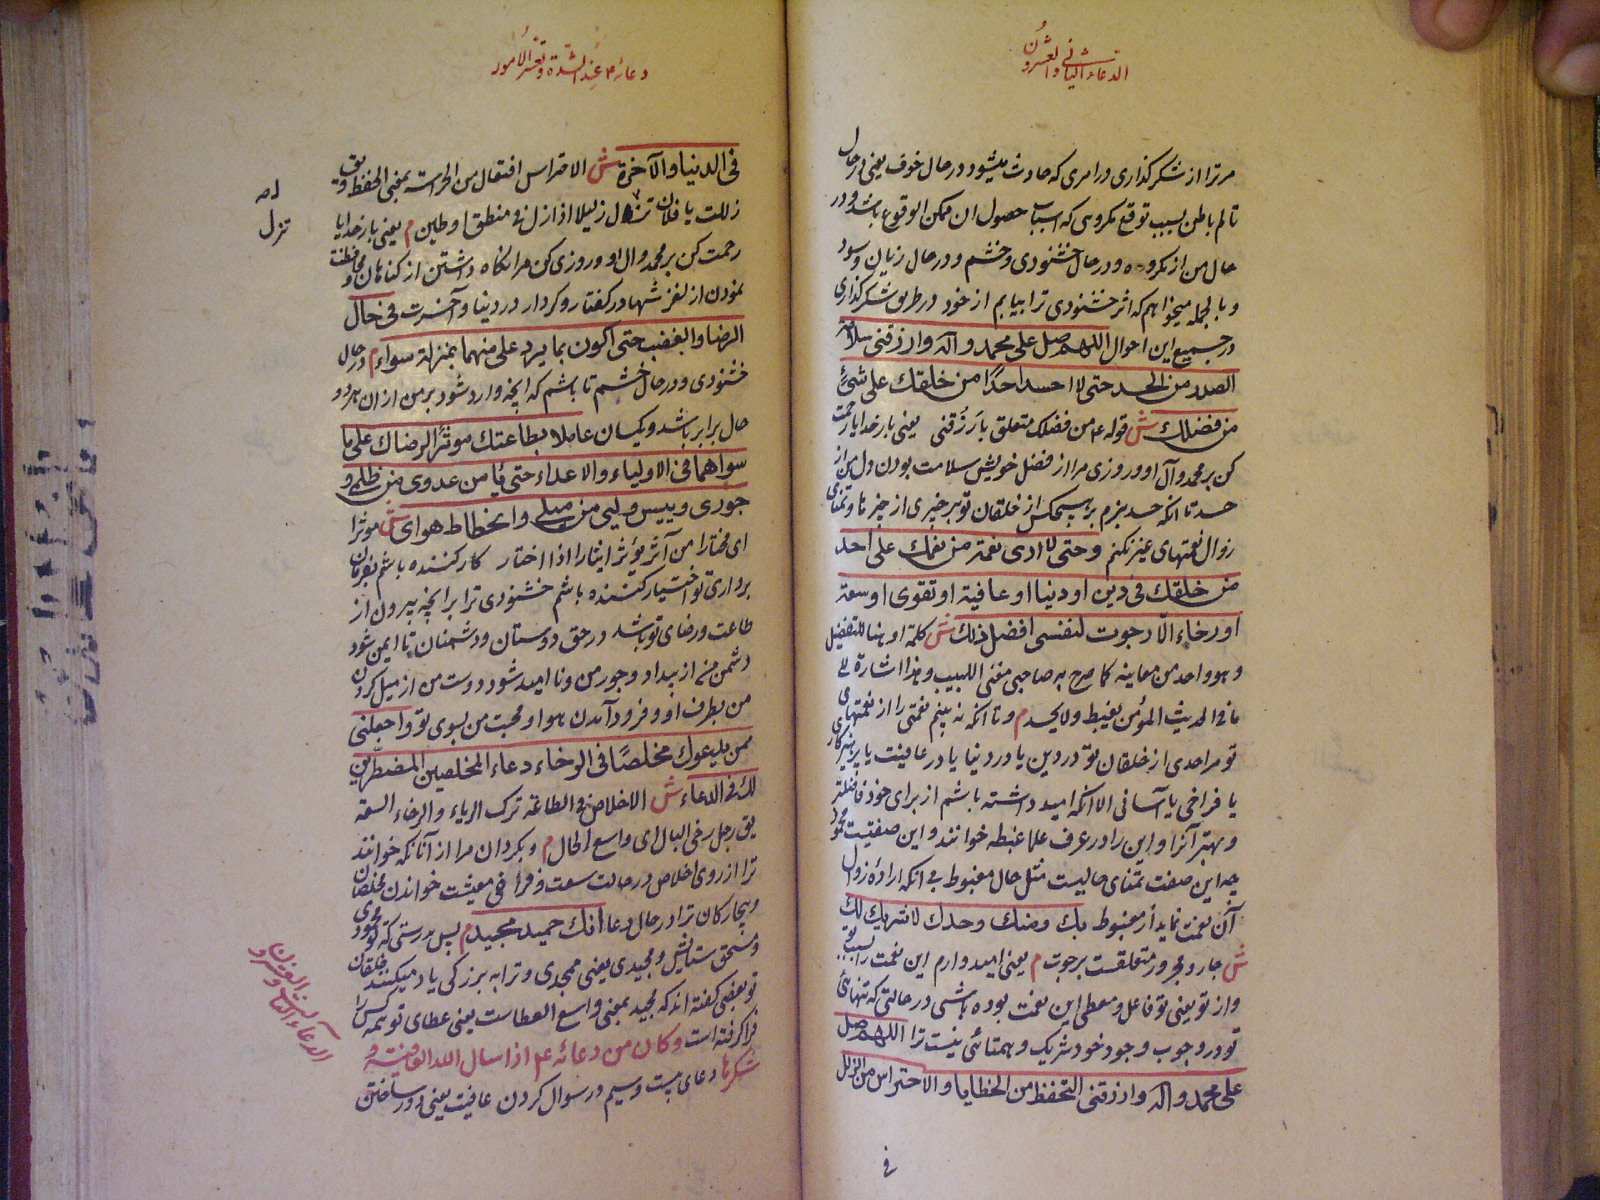 الدعاء الثانی والعشرون
مرترا از شکر گذاری در امری که حادث میشود و در حال خوف یعنی در حال
تالم باطن بسبب توقع مکروهی که اسباب حصول ان ممکن الوقوع باشد و در
حال من از مکروه و در حال خشنودی و خشم و در حال زیان و سود
و بالجمله میخواهم که اثر خشنودی ترا بیابم از خود در طریق شکر گذاری
در جمیع این احوال اللهم صل علی محمد واله وارزقنی سلامة
الصدر من الحسد حتی لا احسد احدًا من خلقك علی شیءٍ
من فضلك ش قوله ع من فضلک متعلق بارزقنی یعنی بار خدایا رحمت
کن بر محمد وآل او و روزی مرا از فضل خویش سلامت بودن دل من از
حسد تا انکه حسد نبرم بر هیچکس از خلقان تو بر چیزی از چیزها و تمنای
زوال نعمتهای غیر نکنم وحتی لا اری نعمة من نعمك علی احد
من خلقك فی دین او دنیا او عافیة او تقوی او سعة
او رخاء الّا رجوت لنفسی افضل ذلك ش کلمة او هنا للتفصیل
و هو واحد من معانیه کما صرح به صاحب مغنی اللبیب و هذا اشارة الی
ما فی الحدیث المؤمن یغبط ولا یحسد م و تا انکه نه بینم نعمتی را از نعمتهای
تو مر احدی از خلقان تو در دین یا در دنیا یا در عافیت یا پرهیزگاری
یا فراخی یا آسانی الا انکه امید داشته باشم از برای خود فاضلتر
و بهتر آنرا و این را در عرف علما غبطه خوانند و این صفتیست محمود
چه این صفت تمنای حالیست مثل حال مغبوط بی انکه اراده زوال
آن نعمت نماید از مغبوط بك ومنك وحدك لا شریك لك
ش جار و مجرور متعلقست برجوت م یعنی امید دارم این نعمت را بسبب تو
و از تو یعنی تو فاعل و معطی این نعمت بوده باشی در حالتی که تنهائی
تو در وجوب وجود خود شریک و همتائی نیست ترا اللهم صل
علی محمد واله وارزقنی التحفظ من الخطایا والاحتراس من الزلل
فی
دعائه ع عند الشدة وتعسر الامور
فی الدنیا والآخرة ش الاحتراس افتعال من الحراسة بمعنی الحفظ ویق
زللت یا فلان تزل زلیلا اذا زل فی منطق او طین م یعنی بار خدایا
تزل
رحمت کن بر محمد وال او و روزی کن مرا نگاه داشتن از گناهان و محافظت
نمودن از لغزشها در گفتار و کردار در دنیا و آخرت فی حال
الرضا والغضب حتی اکون بما یرد علی منهما بمنزلة سواء م در حال
خشنودی و در حال خشم تا باشم که انچه وارد شود بر من از ان هر دو
حال برابر باشد و یکسان عاملا بطاعتك موثرًا لرضاك علی ما
سواهما فی الاولیاء والاعداء حتی یأمن عدوی من ظلمی و
جوری وییس ولیی من میلی وانحطاط هوای ش موثرا
ای مختارا من آثر یؤثر ایثارا اذا اختار کار کننده باشم بفرمان
برداری تو اختیار کننده باشم خشنودی ترا بر انچه بیرون از
طاعت و رضای تو باشد در حق دوستان و دشمنان تا ایمن شود
دشمن من از بیداد و جور من و ناامید شود دوست من از میل کردن
من بطرف او و فرود آمدن هوا و محبت من بسوی تو واجعلنی
ممن یدعوك مخلصًا فی الرخاء دعاء المخلصین المضطرین
لك فی الدعاء ش الاخلاص فی الطاعة ترک الریاء والرخاء السعة
یق رجل رخی البال ای واسع الحال م و بگردان مرا از آنانکه خوانند
ترا از روی اخلاص در حالت سعت و فراخی معیشت خواندن مخلصان
و بیچارگان ترا در حال دعا انك حمید مجید م پس بدرستی که تو محمودی
و مستحق ستایش و مجیدی یعنی ممجدی و ترا به بزرگی یاد میکنند خلقان
تو بعضی گفته اند که مجید بمعنی واسع العطاست یعنی عطای تو همه کس را
فرا گرفته است وکان من دعائه ع اذا سال الله العافیة و
شکرها دعای بیست و سیم در سوال کردن عافیت یعنی دور ساختن
الدعاء الثالث والعشرون